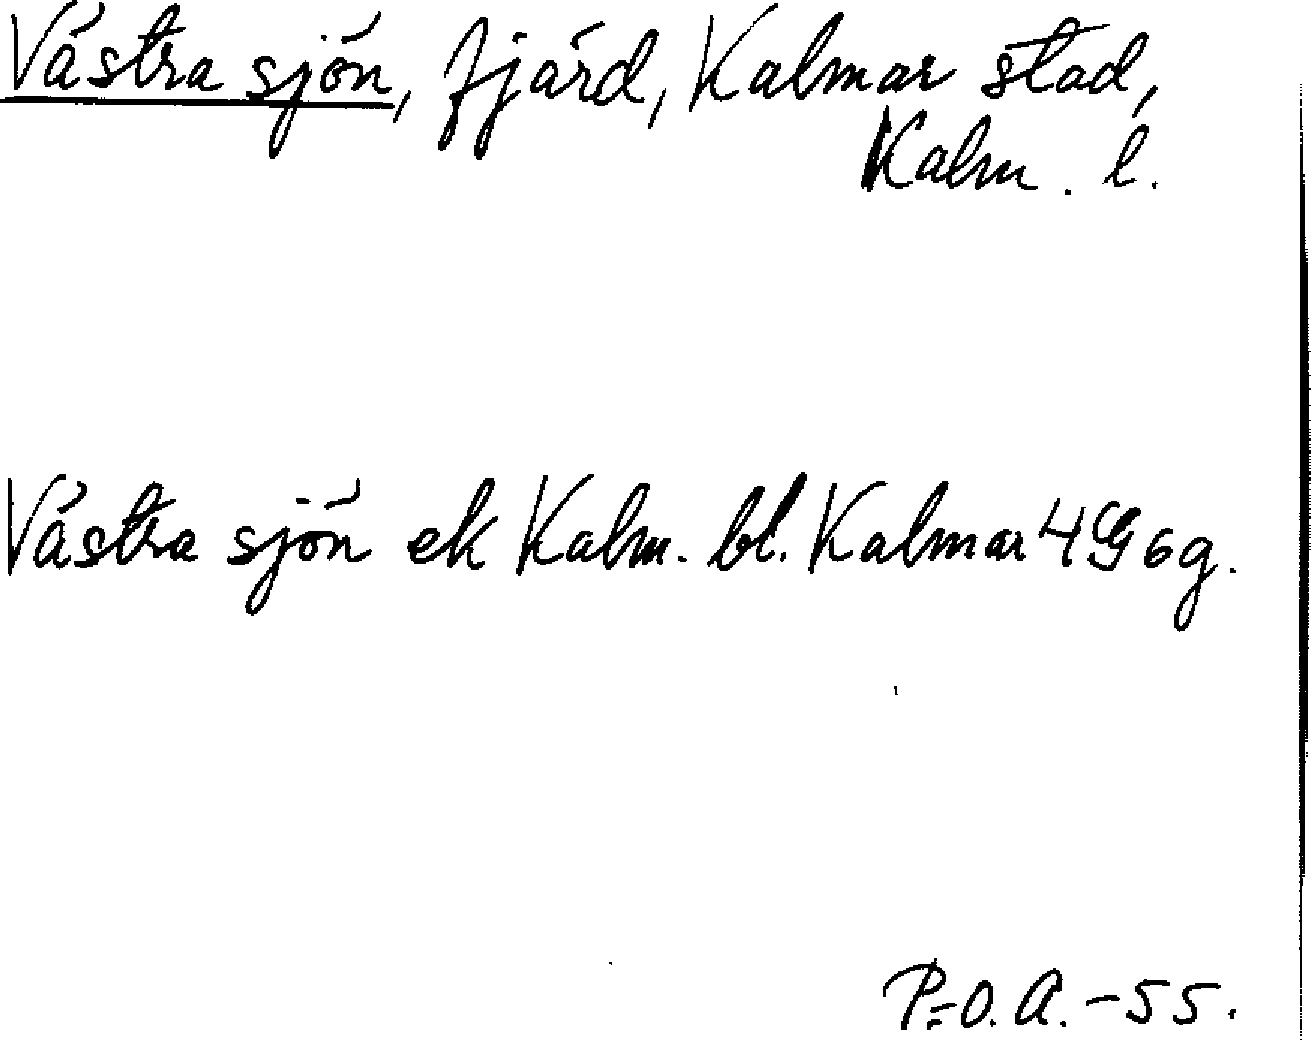 Västra sjön, fjärd, Kalmar stad,
Kalm. l.
Västra sjön ek Kalm. bl. Kalmar 4G6g.
P.-O. A. -55.